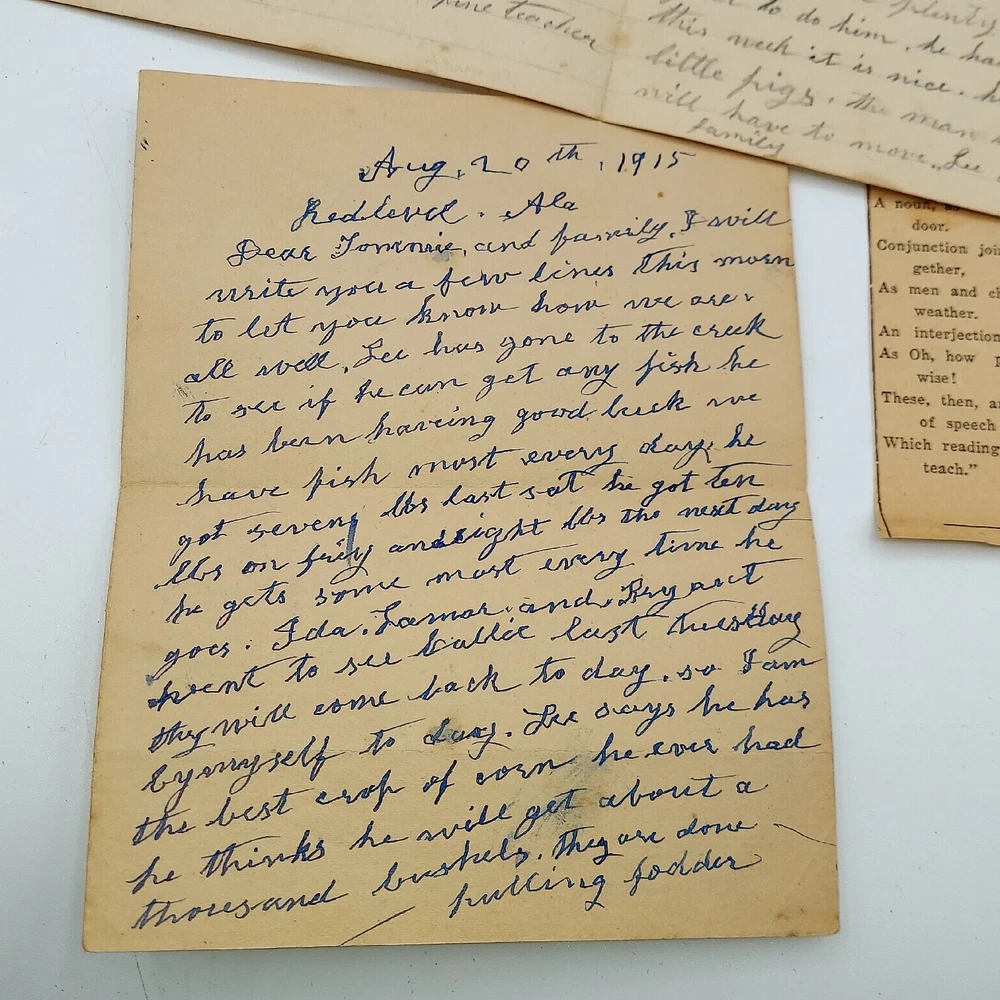 pine teacher
plenty
to do him, he ha
this week it is nice. h
little pigs. the man
will have to move. Lee
family
Aug, 20th, 1915
Redlevel. Ala
Dear Tommie, and family, I will
write you a few lines this morn
to let you know how we are.
all well, Lee has gone to the creek
to see if he can get any fish he
has been haveing good luck we
have fish most every day, he
got seven lbs last sat he got ten
lbs on friy and eight lbs the next day
he gets some most every time he
goes. Ida, Lamar, and, Bryant
went to see Callie last tuesday
they will come back to day, so I am
by myself to day. Lee says he has
the best crop of corn he ever had
he thinks he will get about a
thousand bushels. they are done
pulling fodder
A noun, as
door.
Conjunction join
gether,
As men and ch
weather.
An interjection
As Oh, how p
wise!
These, then, ar
of speech
Which reading
teach."